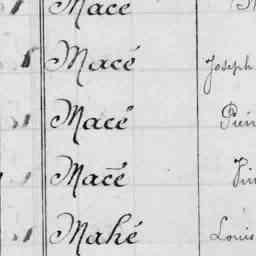 Macé
Macé Joseph
Macé
Macé
Mahé Louis